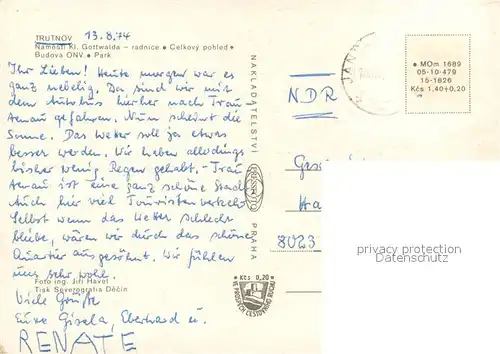 TRUTNOV 13.8.74
Náměstí Kl. Gottwalda – radnice • Celkový pohled •
Budova ONV • Park
Ihr Lieben! Heute morgen war es
ganz nebelig. Da sind wir mit
dem Autobus hierher nach Trau
tenau gefahren. Nun scheint die
Sonne. Das Wetter soll ja etwas
besser werden. Wir haben allerdings
bisher wenig Regen gehabt. – Trau
tenau ist eine ganz schöne Stadt
Auch hier viel Touristenverkehr
Selbst wenn das Wetter schlecht
bliebe, wären wir durch das schöne
Quartier ausgesöhnt. Wir fühlen
uns sehr wohl.
Foto ing. Jiří Havel
Tisk Severografia Děčín
Viele Grüße
Eure Gisela, Eberhard u.
RENATE
NAKLADATELSTVÍ
PRESSFOTO
PRAHA
Kčs 0,20
• MOm 1689
05-10-479
15-1826
Kčs 1,40+0,20
NDR
8023
privacy protection
Datenschutz